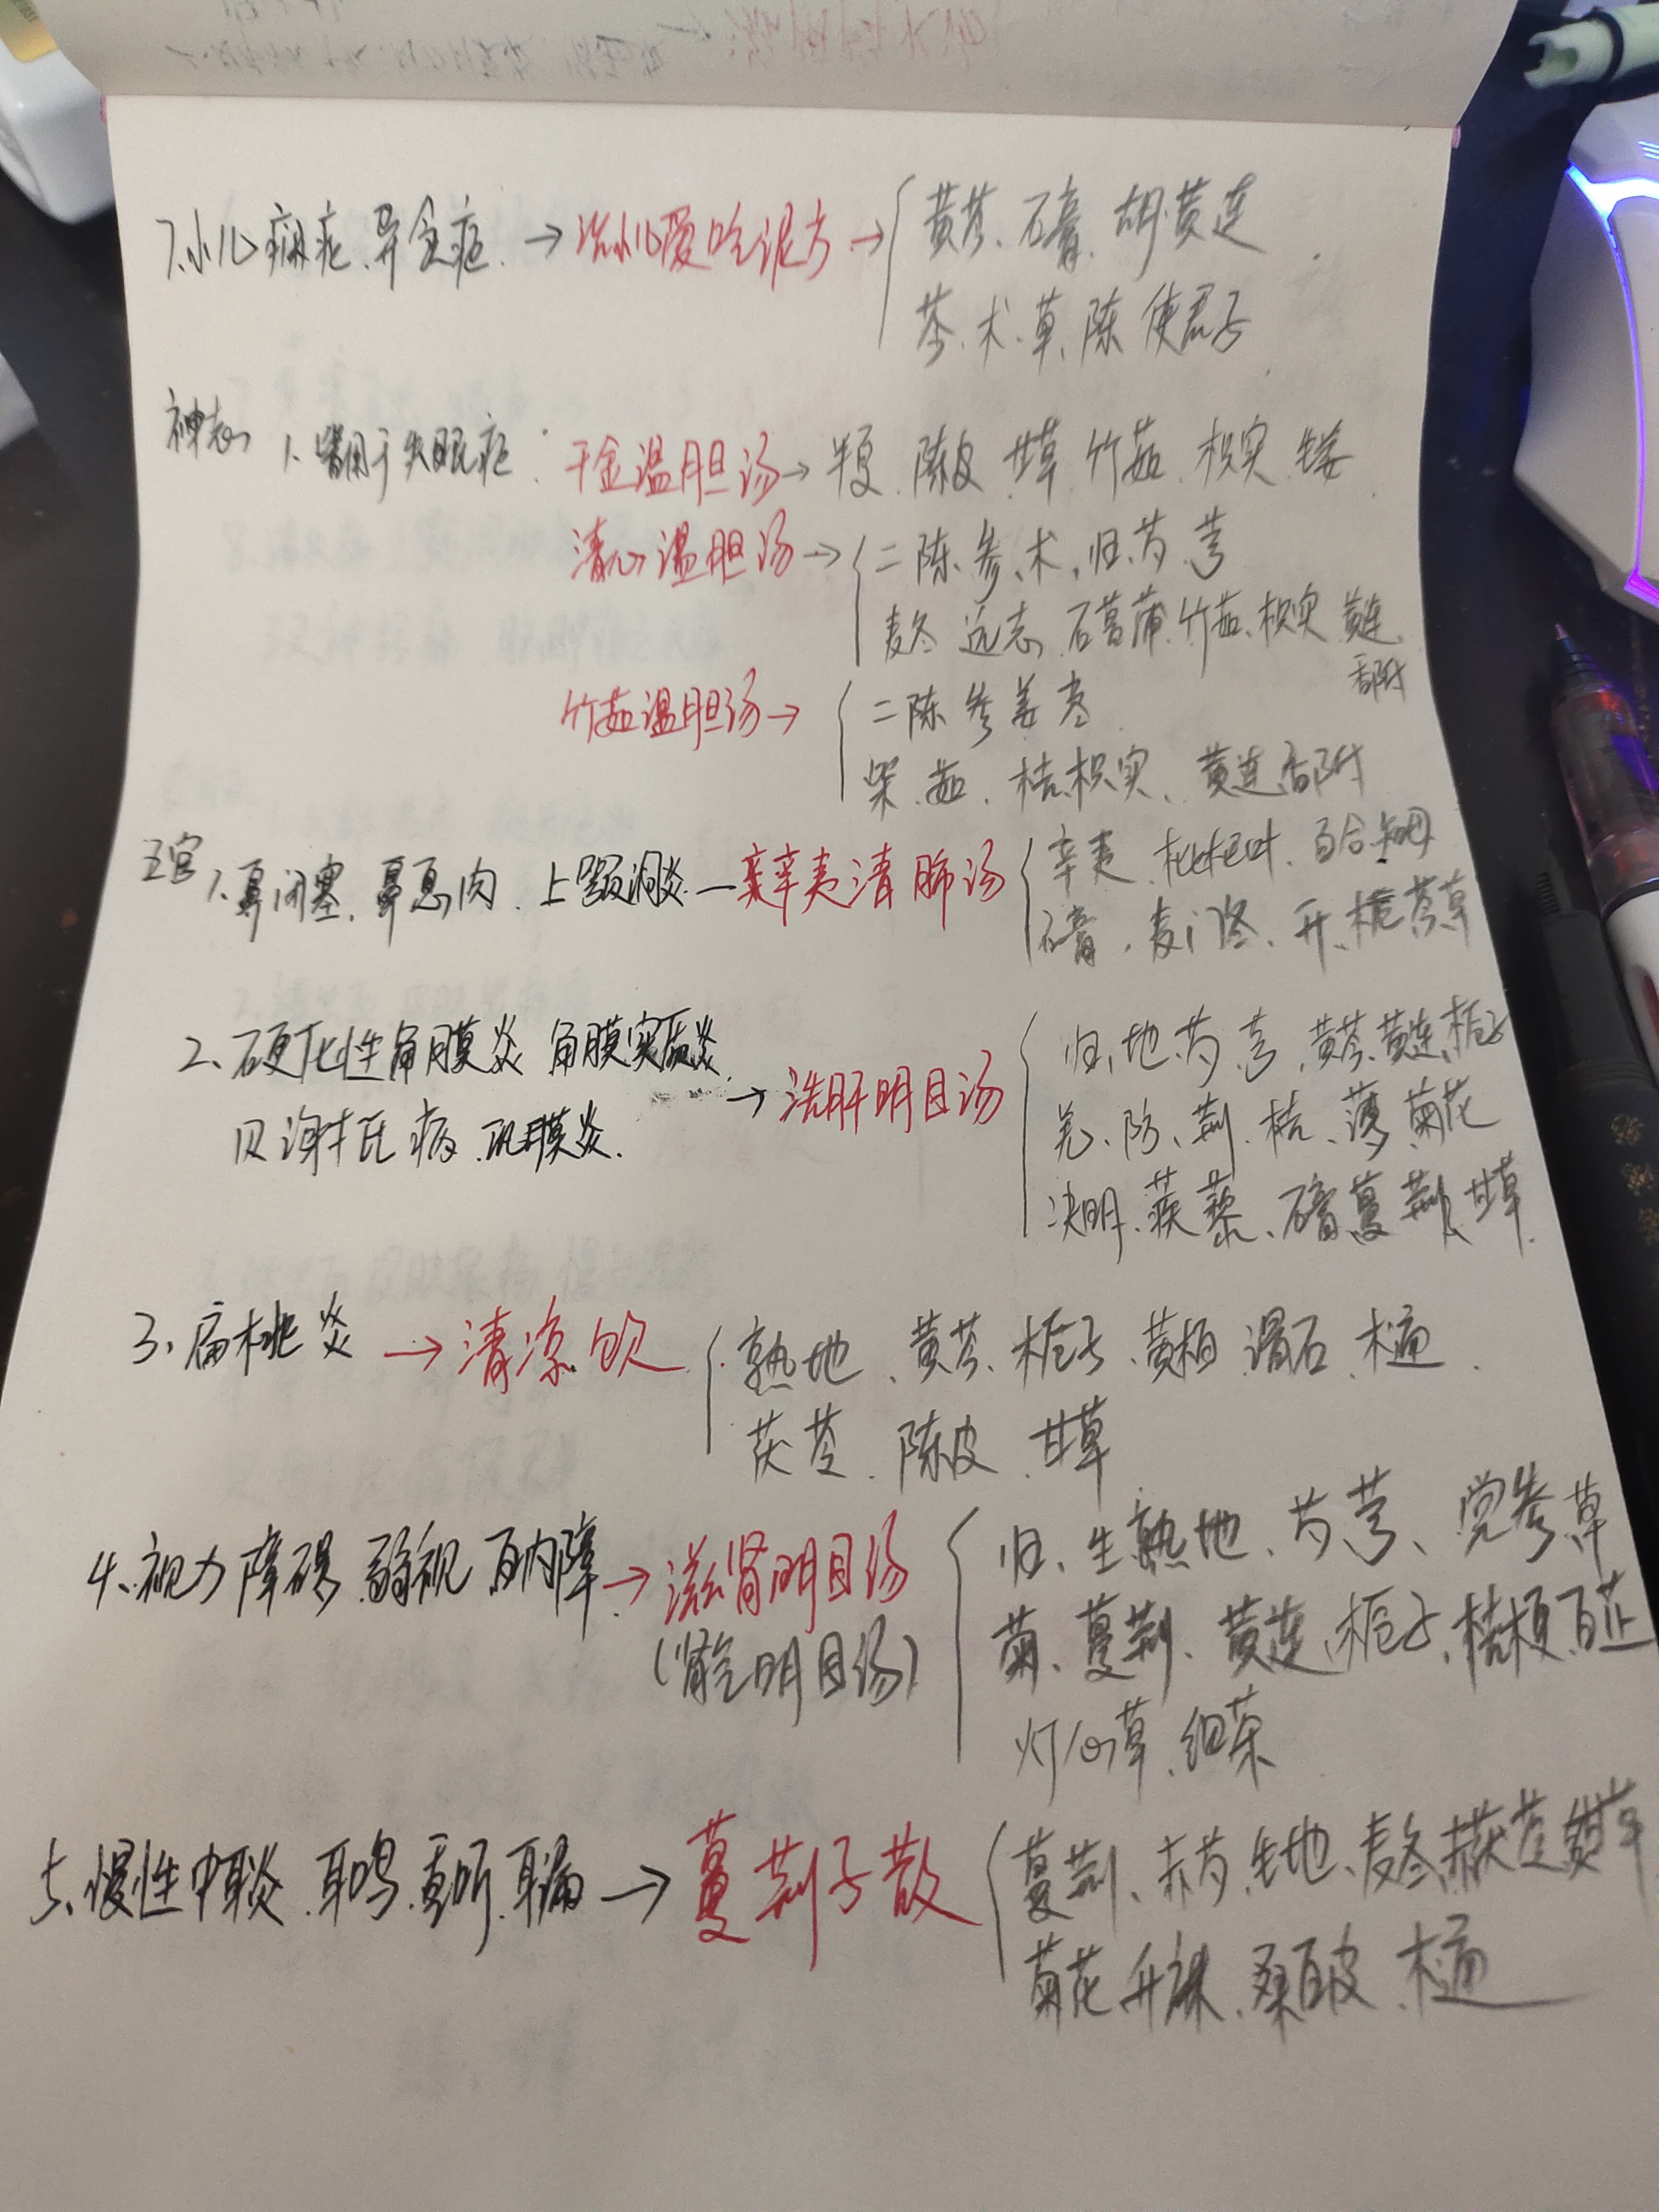 7.小儿癖症.异食症.→治小儿爱吃泥方→黄芩.石膏.胡黄连
苓.术.草.陈.使君子
神志 1.皆用于失眠症. 千金温胆汤→半夏.陈皮.甘草.竹茹.枳实.生姜
清心温胆汤→二陈.参.术.归.芍.芎
麦冬 远志.石菖蒲.竹茹.枳实 黄连
香附
竹茹温胆汤→二陈 参 姜 枣
柴.茹.桔.枳实、黄连香附
五官 1.鼻闭塞.鼻息肉.上颚洞炎—辛夷清肺汤 辛夷.枇杷叶.百合.知母
石膏.麦门冬.升.栀芩草
2、硬化性角膜炎 角膜实质炎
贝谢托氏病.巩膜炎.→洗肝明目汤 归、地.芍.芎.黄芩.黄连.栀子
羌、防、荆.桔、薄.菊花
决明.蒺藜、石膏.蔓荆.甘草
3、扁桃炎→清凉饮 熟地、黄芩、栀子、黄柏 滑石.木通.
茯苓.陈皮.甘草
4、视力障碍.弱视 白内障→滋肾明目汤 归、生熟地、芍芎、党参草
(肾气明目汤) 菊、蔓荆、黄连、栀子、桔梗.白芷
灯心草.细茶
5、慢性中耳炎.耳鸣.重听.耳漏→蔓荆子散 蔓荆、赤芍.生地、麦冬.赤茯苓 甘草
菊花 升麻.桑白皮.木通